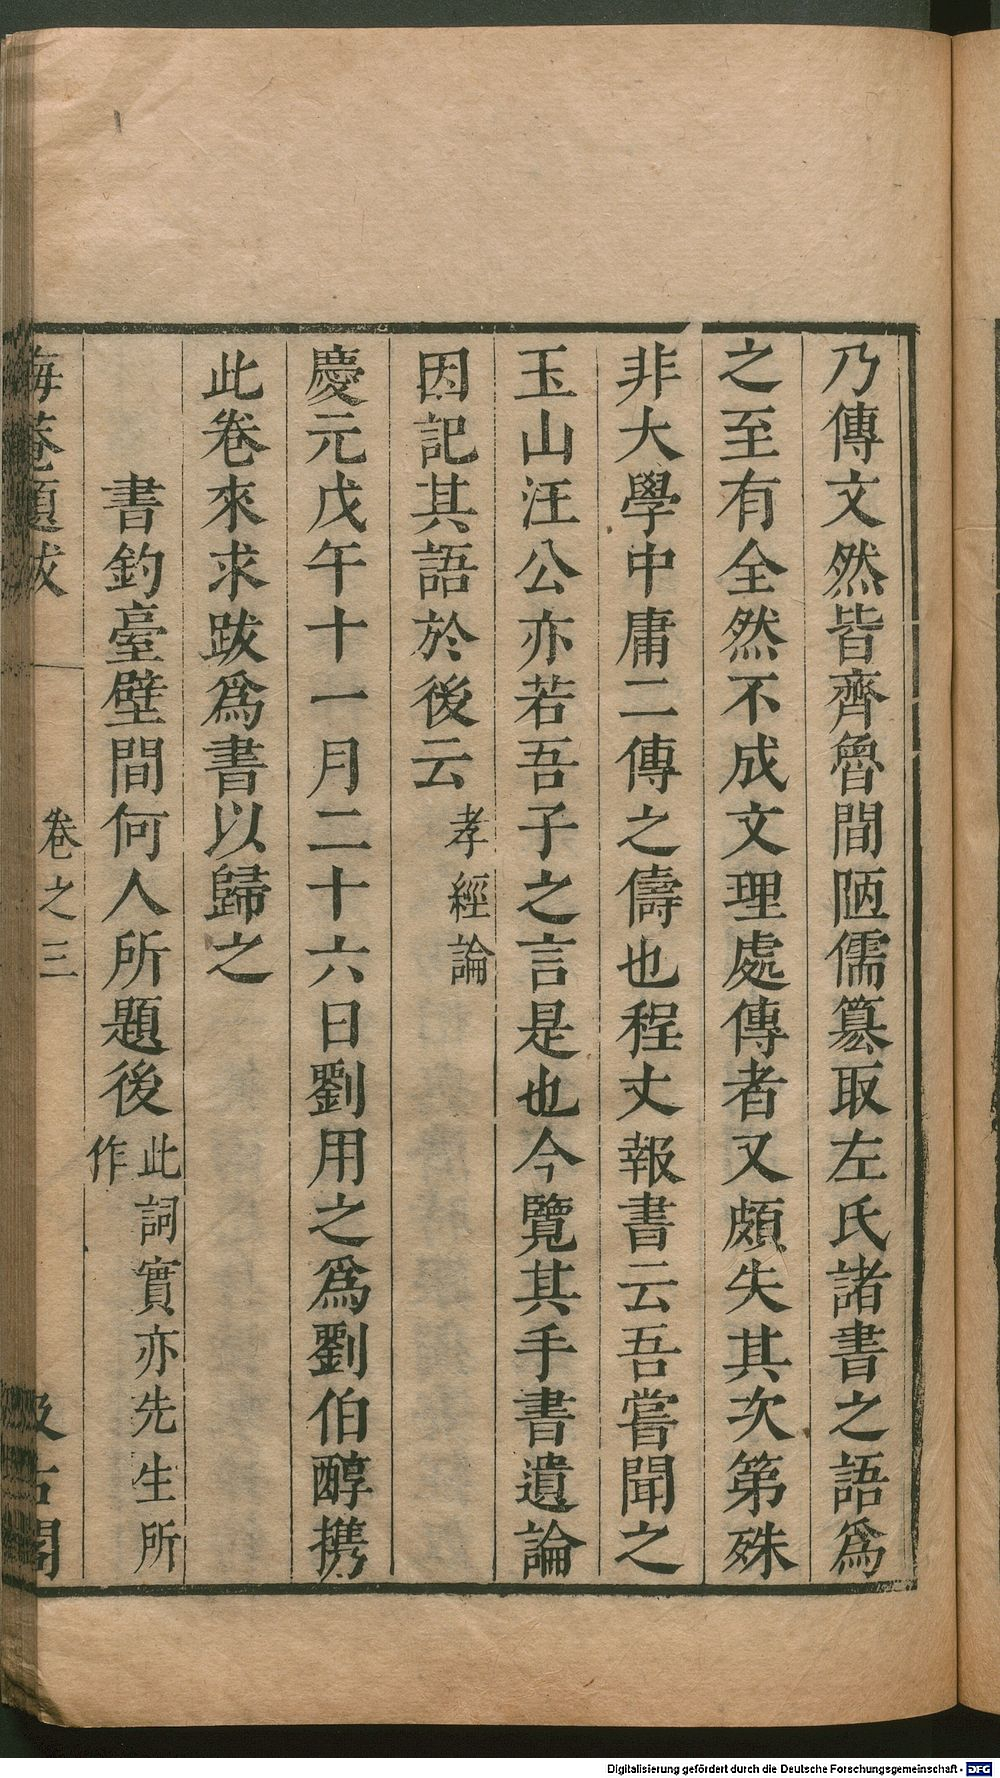 乃傳文然皆齊魯間陋儒簒取左氏諸書之語爲
之至有全然不成文理處傳者又頗失其次第殊
非大學中庸二傳之儔也程丈報書云吾嘗聞之
玉山汪公亦若吾子之言是也今覽其手書遺論
因記其語於後云孝經論
慶元戊午十一月二十六日劉用之爲劉伯醇攜
此卷來求跋爲書以歸之
書釣臺壁間何人所題後此詞實亦先生所
作
晦菴題跋 卷之三 汲古閣
Digitalisierung gefördert durch die Deutsche Forschungsgemeinschaft - DFG